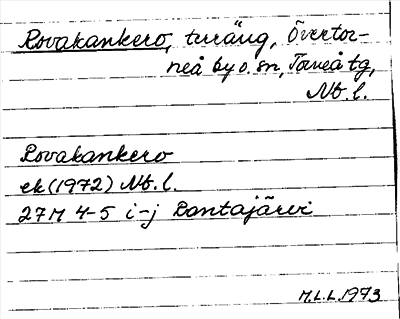 Rovakankero, terräng, Övertor-
neå by o. sn, Torneå tg,
Nb. l.
Rovakankero
ek (1972) Nb. l.
27M 4-5 i-j Lantajärvi
M.L.L. 1973